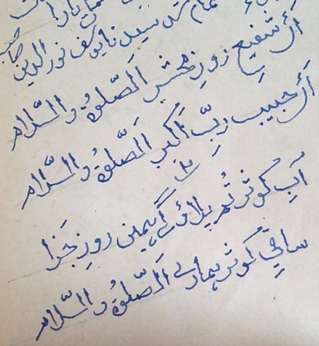 سیدنا یوسف نور الدین
اَے شفیعِ روزِ محشر اَلصَّلٰوۃُ وَ السَّلام
اَے حبیبِ ربِّ اکبر اَلصَّلٰوۃُ وَ السَّلام
آپ کوثر تُم پلاؤگے ہمیں روزِ جَزا
ساقیِ کوثر ہمارے اَلصَّلٰوۃُ وَ السَّلام